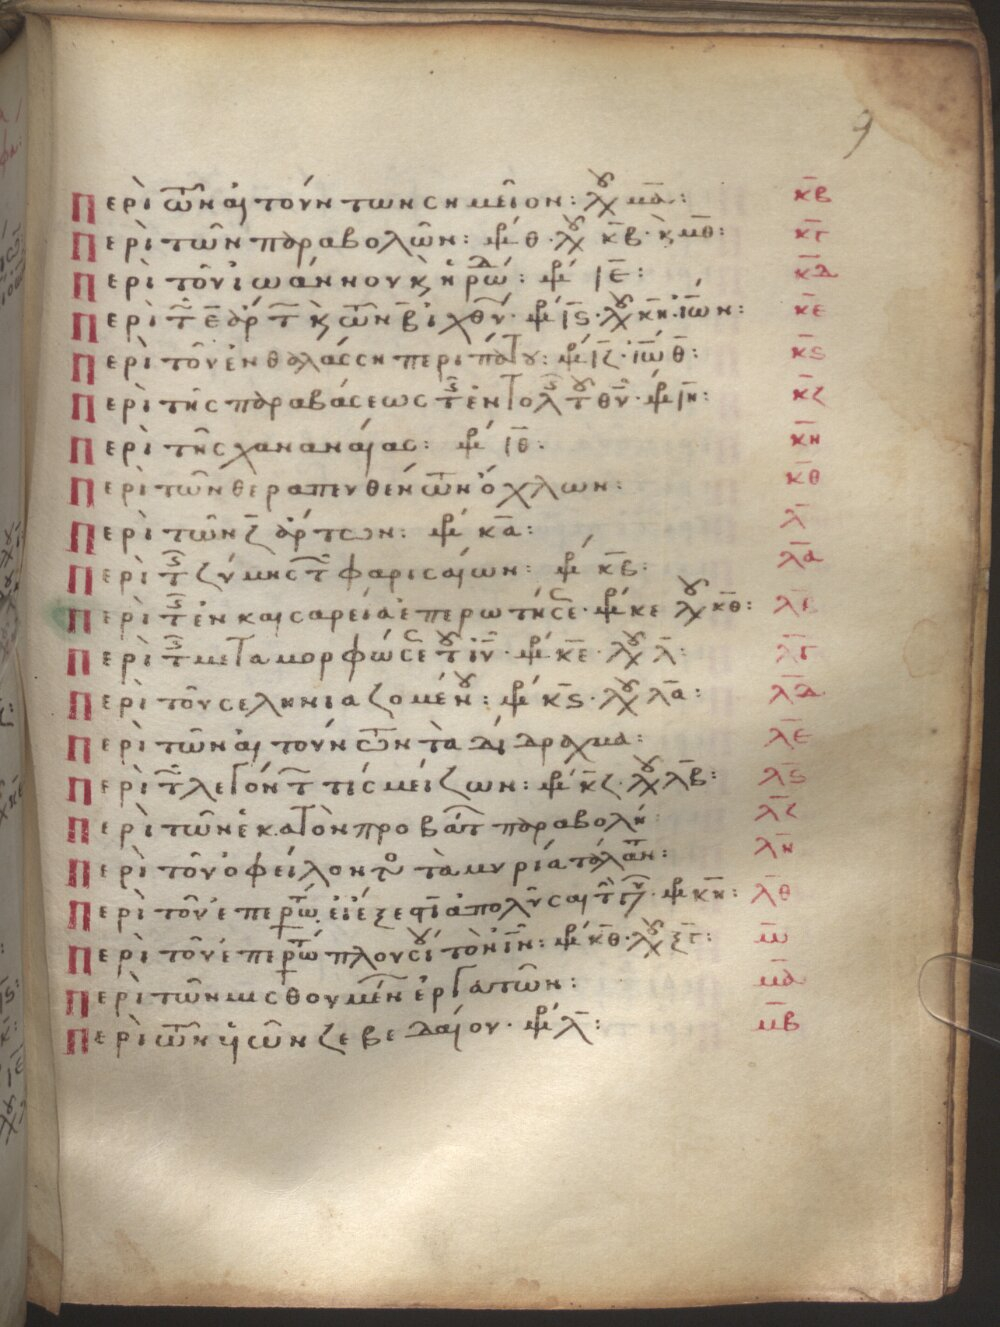 9
Περὶ τῶν αἰτούντων σημεῖον: λχ μα: κβ
Περὶ τῶν παραβολῶν: μθ θ· λχ κβ· κ μθ: κγ
Περὶ τοῦ ἰωάννου κ ηρώδ: μθ ιε: κδ
Περὶ τ ε ἄρτ κ τῶν β ἰχθύ· μθ ις· λχ κη· ἰω η: κε
Περὶ τοῦ ἐν θαλάσση περιπάτου: μθ ιζ· ἰω θ: κς
Περὶ τῆς παραβάσεως τ ἐντολ τ θυ· μθ ιη: κζ
Περὶ τῆς χαναναίας: μθ ιθ: κη
Περὶ τῶν θεραπευθέντων ὄχλων: κθ
Περὶ τῶν ζ ἄρτων: μθ κα: λ
Περὶ τ ζύμης τ φαρισαίων: μθ κβ: λα
Περὶ τ ἐν καισαρεία ἐπερωτήσε· μθ κε λχ κθ: λβ
Περὶ τ μεταμορφώσε τ ιυ· μθ κε· λχ λ: λγ
Περὶ τοῦ σεληνιαζομένου: μθ κς· λχ λα: λδ
Περὶ τῶν αἰτούντων τὰ δίδραχμα: λε
Περὶ τ λεγόντ τίς μείζων: μθ κζ· λχ λβ: λς
Περὶ τῶν ἑκατὸν προβάτ παραβολή λζ
Περὶ τοῦ ὀφείλοντο τὰ μυρία τάλαν: λη
Περὶ τοῦ ἐπερωτ εἰ ἔξεστι ἀπολῦσαι τ γυ· μθ κη: λθ
Περὶ τοῦ ἐπερωτ πλουσί τὸν ιν: μθ κθ· λχ ξγ: μ
Περὶ τῶν μισθουμέν ἐργατῶν: μα
Περὶ τῶν υἱῶν ζεβεδαίου· μθ λ: μβ